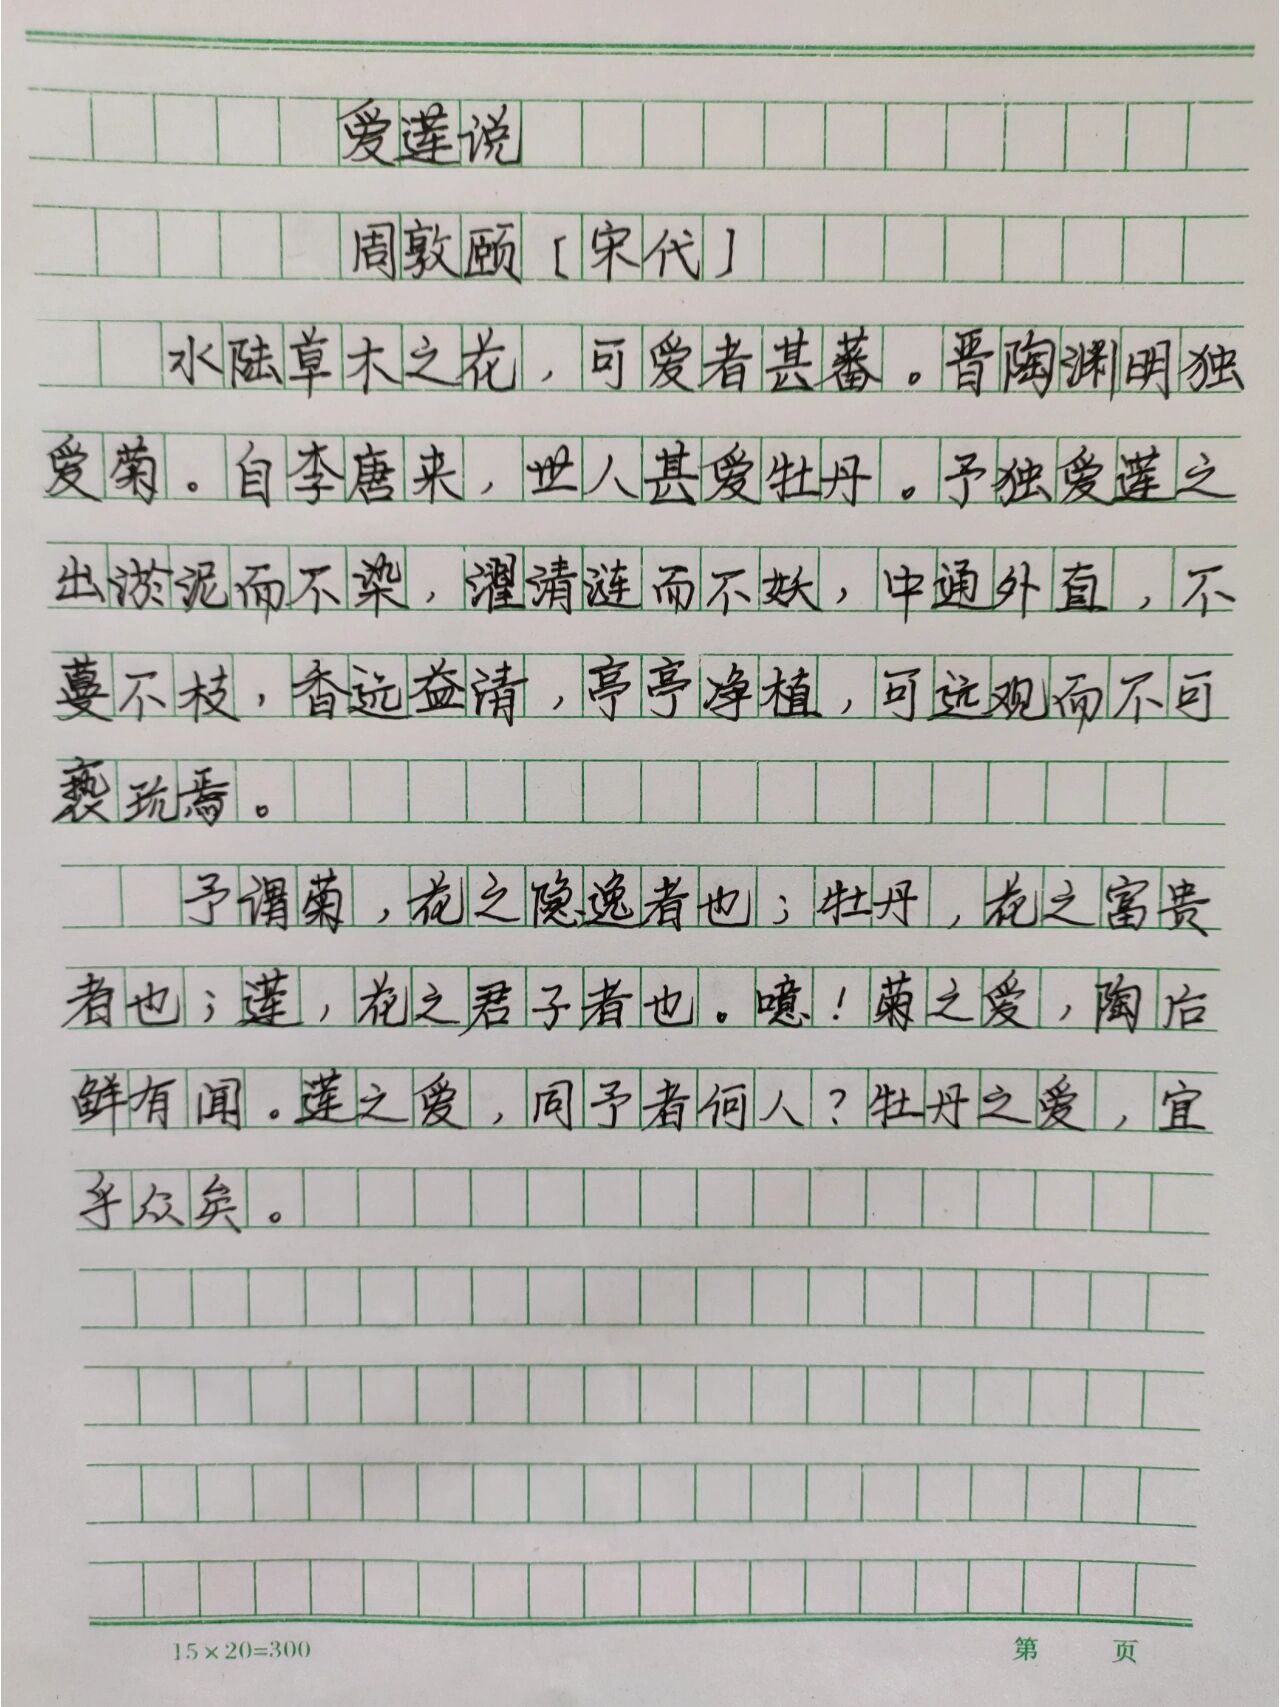 爱莲说
周敦颐[宋代]
水陆草木之花，可爱者甚蕃。晋陶渊明独
爱菊。自李唐来，世人甚爱牡丹。予独爱莲之
出淤泥而不染，濯清涟而不妖，中通外直，不
蔓不枝，香远益清，亭亭净植，可远观而不可
亵玩焉。
予谓菊，花之隐逸者也；牡丹，花之富贵
者也；莲，花之君子者也。噫！菊之爱，陶后
鲜有闻。莲之爱，同予者何人？牡丹之爱，宜
乎众矣。
15×20=300 第 页